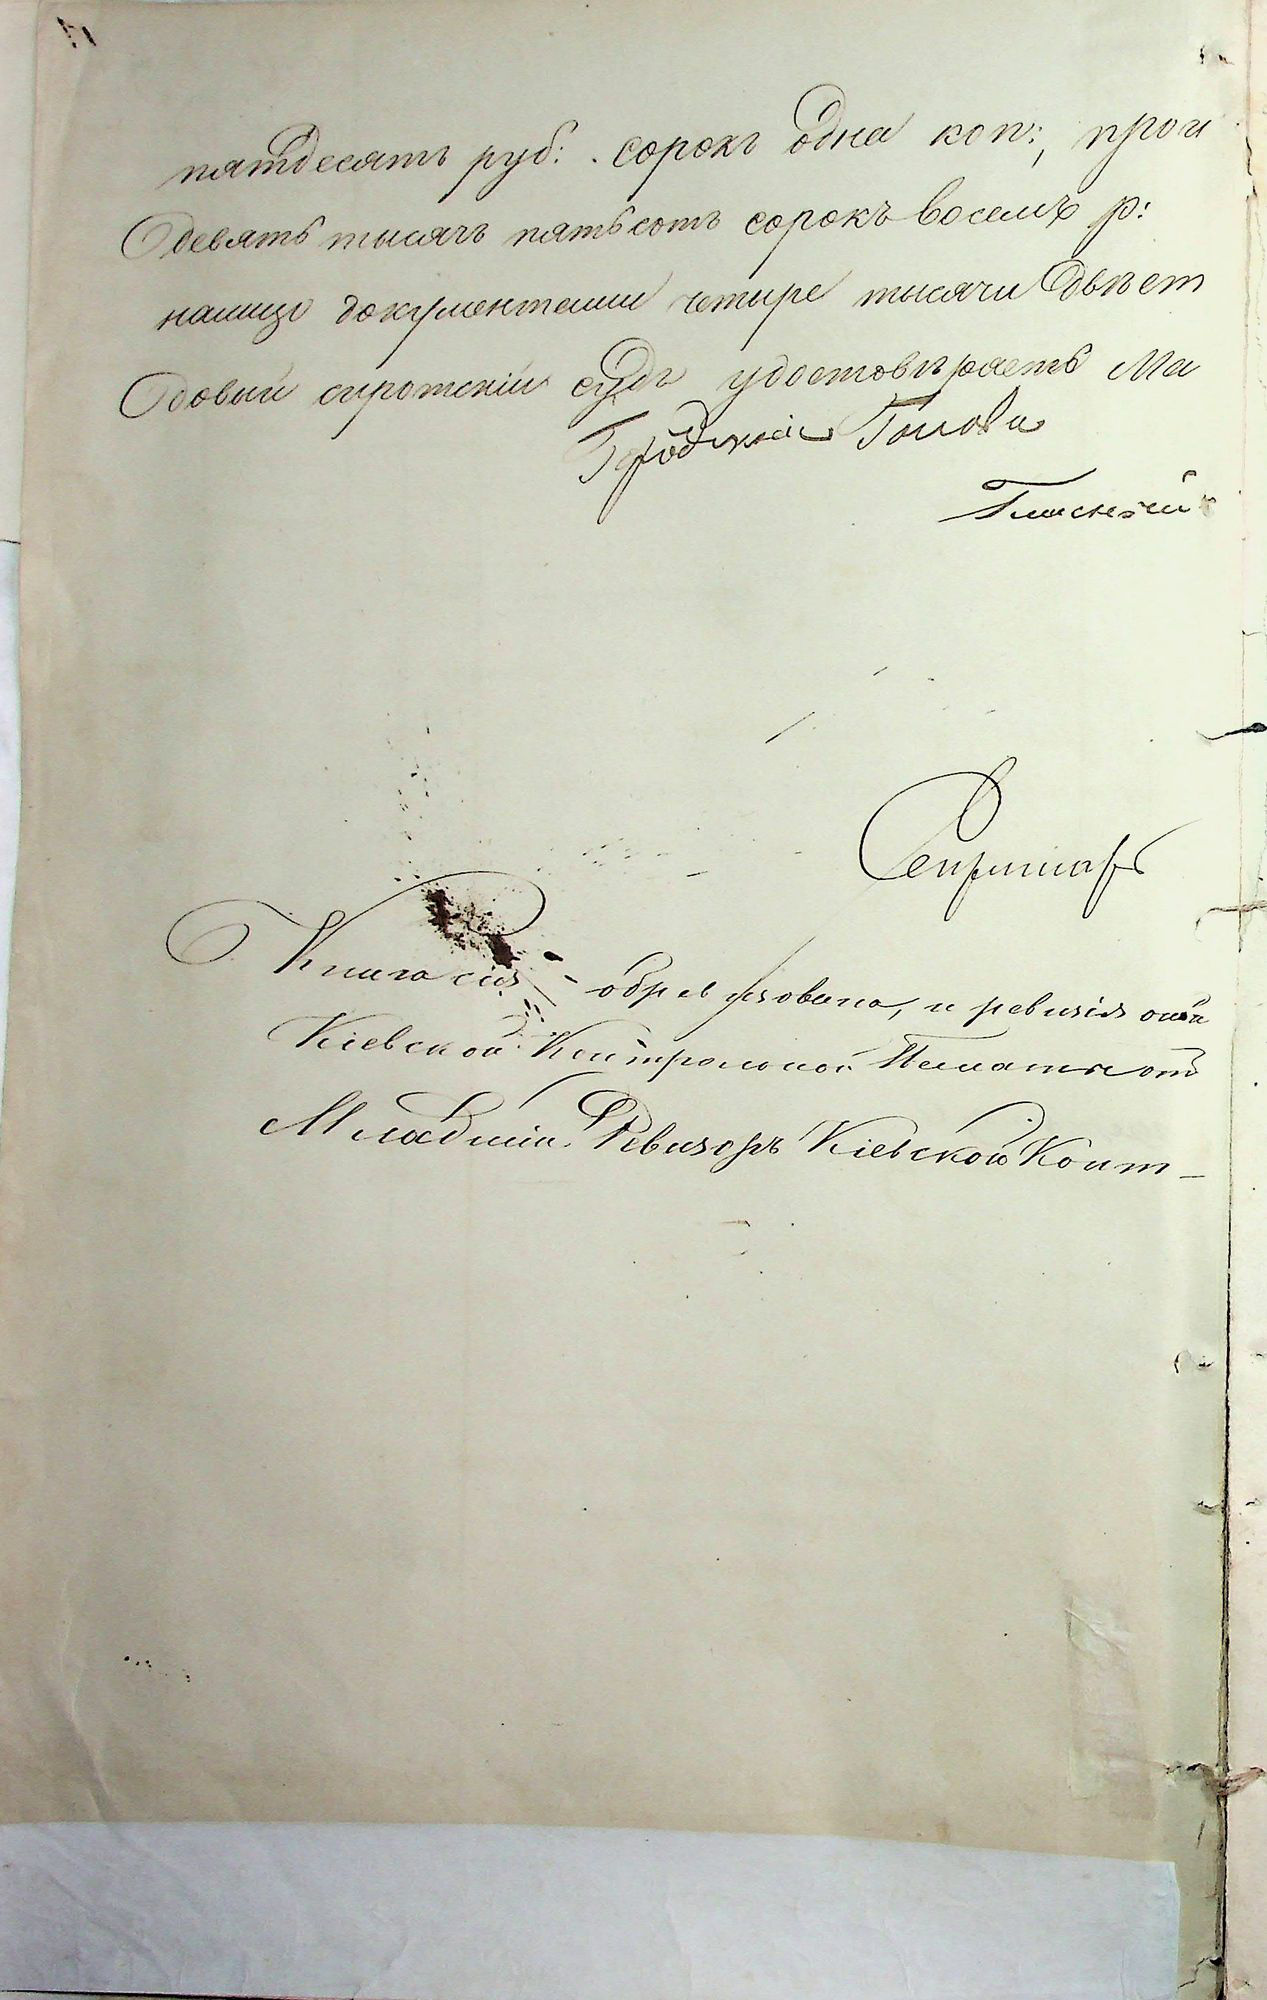 пятдесятъ руб: сорокъ одна коп:, прои
девять тысячъ пятьсотъ сорокъ восемъ р:
налицо документами четыре тысячи двѣст
довый сиротскій судъ удостовѣряетъ Ма
Городской Голова
Гласный
Секретарь
Книга сія обревизована, и ревизія
Кіевской Контрольной Палаты от
Младшій Ревизоръ Кіевской Конт-